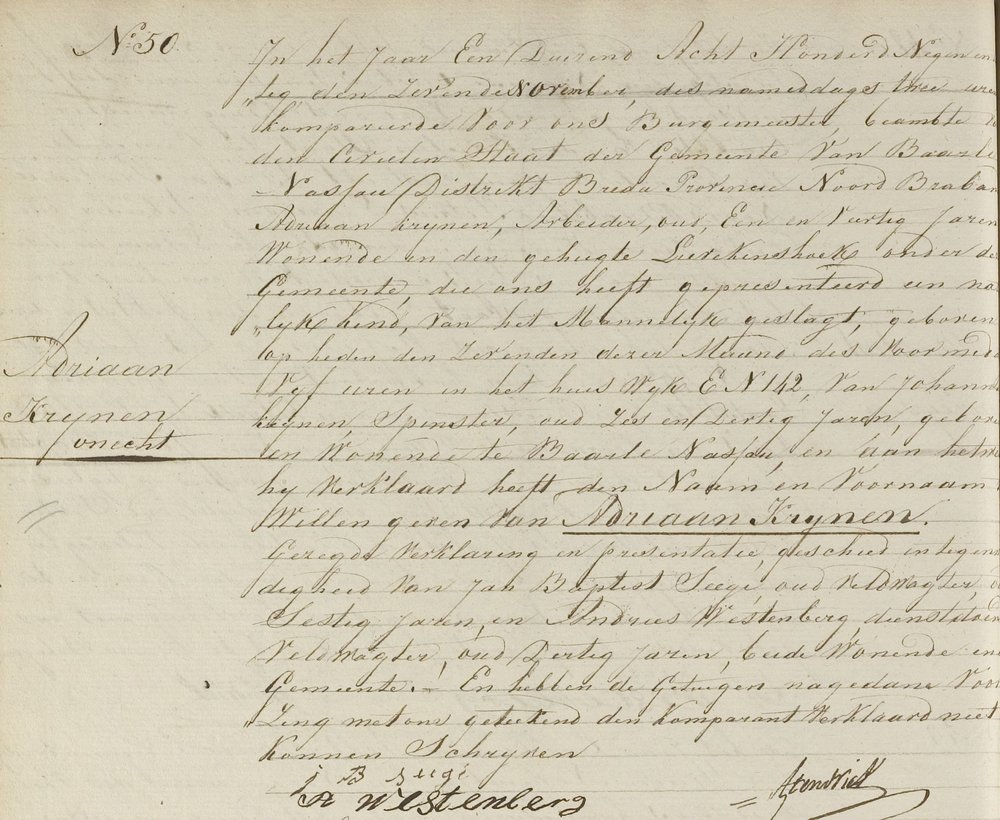 No. 50.
In het Jaar Een Duizend Acht Honderd Negen en
"tig, den Zevende November, des namiddags twee uren
kompareerde Voor ons Burgemeester, beambte
den Civielen Staat der Gemeente Van Baarle
Nassau Distrikt Breda Provincie Noord Braban
Adriaan Krijnen, Arbeider, oud, Een en Veertig Jaren
Wonende in den gehugte onder de
Gemeente, die ons heeft gepresenteerd een na
"lyk kind, Van het Mannelyk geslagt, geboren
op heden den Zevenden dezer Maand des Voormid
Vyf uren in het huis Wyk E N 142, Van Johann
Krynen, Spinster, oud Zes en Dertig Jaren, gebore
en Wonende te Baarle Nassau, en aan het
hy Verklaard heeft den Naam en Voornaam
Willen geven Van Adriaan Krynen.
Gezegde Verklaring en presentatie, geschied in tegen
digheid Van Jan Baptist Seegé, oud Veldwagter,
Sestig Jaren, en Andries Westenberg, dienstdoen
Veldwagter, oud Dertig Jaren, beide Wonende in
Gemeente. En hebben de Getuigen nagedane Voor
Zing met ons geteekend den Komparant Verklaard niet
konnen Schryven
Adriaan
Krynen
onecht
J B Seegé
A Westenberg